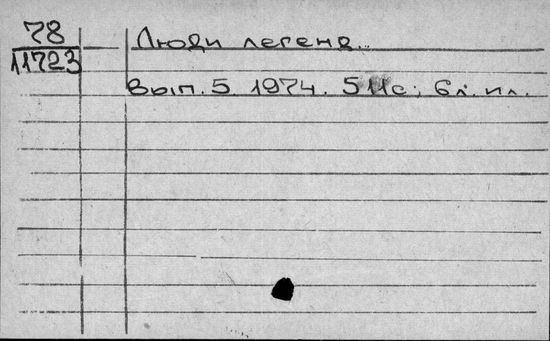 78
11723
Люди легенд..
Вып. 5. 1974. 511с; 6л. ил.